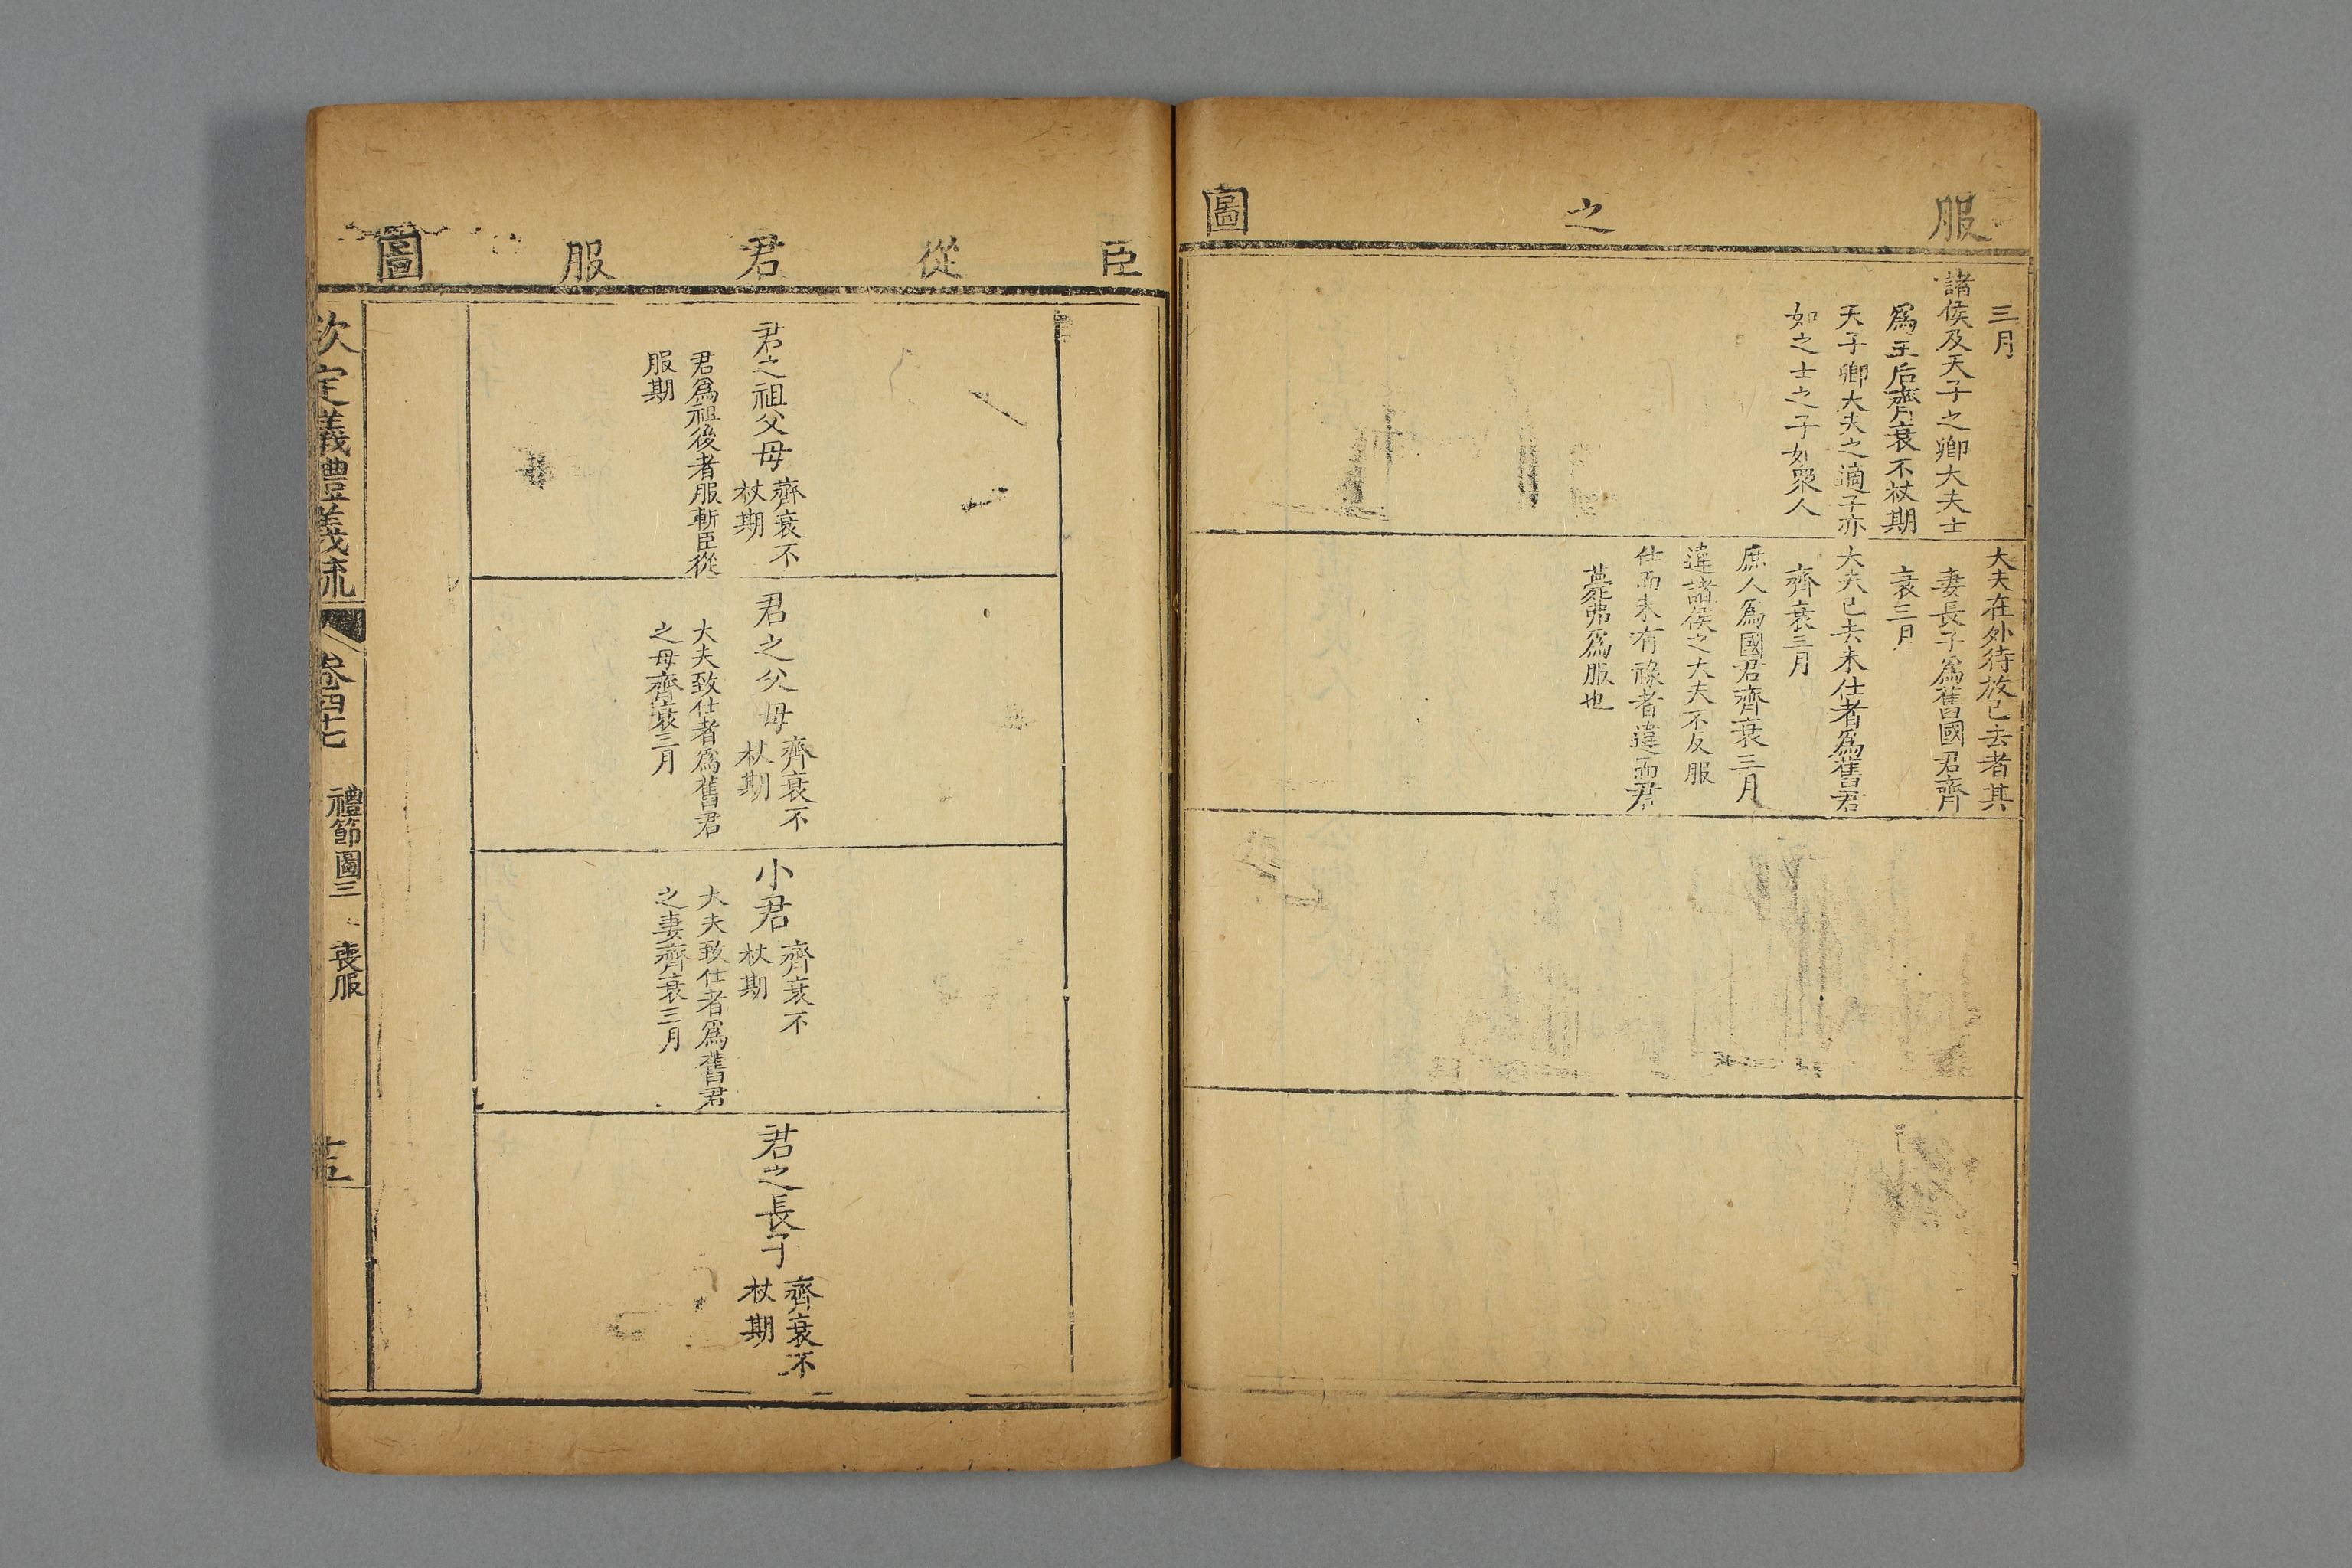 服之圖
三月
諸侯及天子之卿大夫士
爲王后齊衰不杖期
天子卿大夫之適子亦
如之士之子如衆人
大夫在外待放已去者其
妻長子爲舊國君齊
衰三月
大夫已去未仕者爲舊君
齊衰三月
庶人爲國君齊衰三月
違諸侯之大夫不反服
仕而未有祿者違而君
薨弗爲服也
臣從君服圖
君之祖父母
齊衰不
杖期
君爲祖後者服斬臣從
服期
君之父母
齊衰不
杖期
大夫致仕者爲舊君
之母齊衰三月
小君
齊衰不
杖期
大夫致仕者爲舊君
之妻齊衰三月
君之長子
齊衰不
杖期
欽定儀禮義疏
卷四十七
禮節圖三
喪服
十五